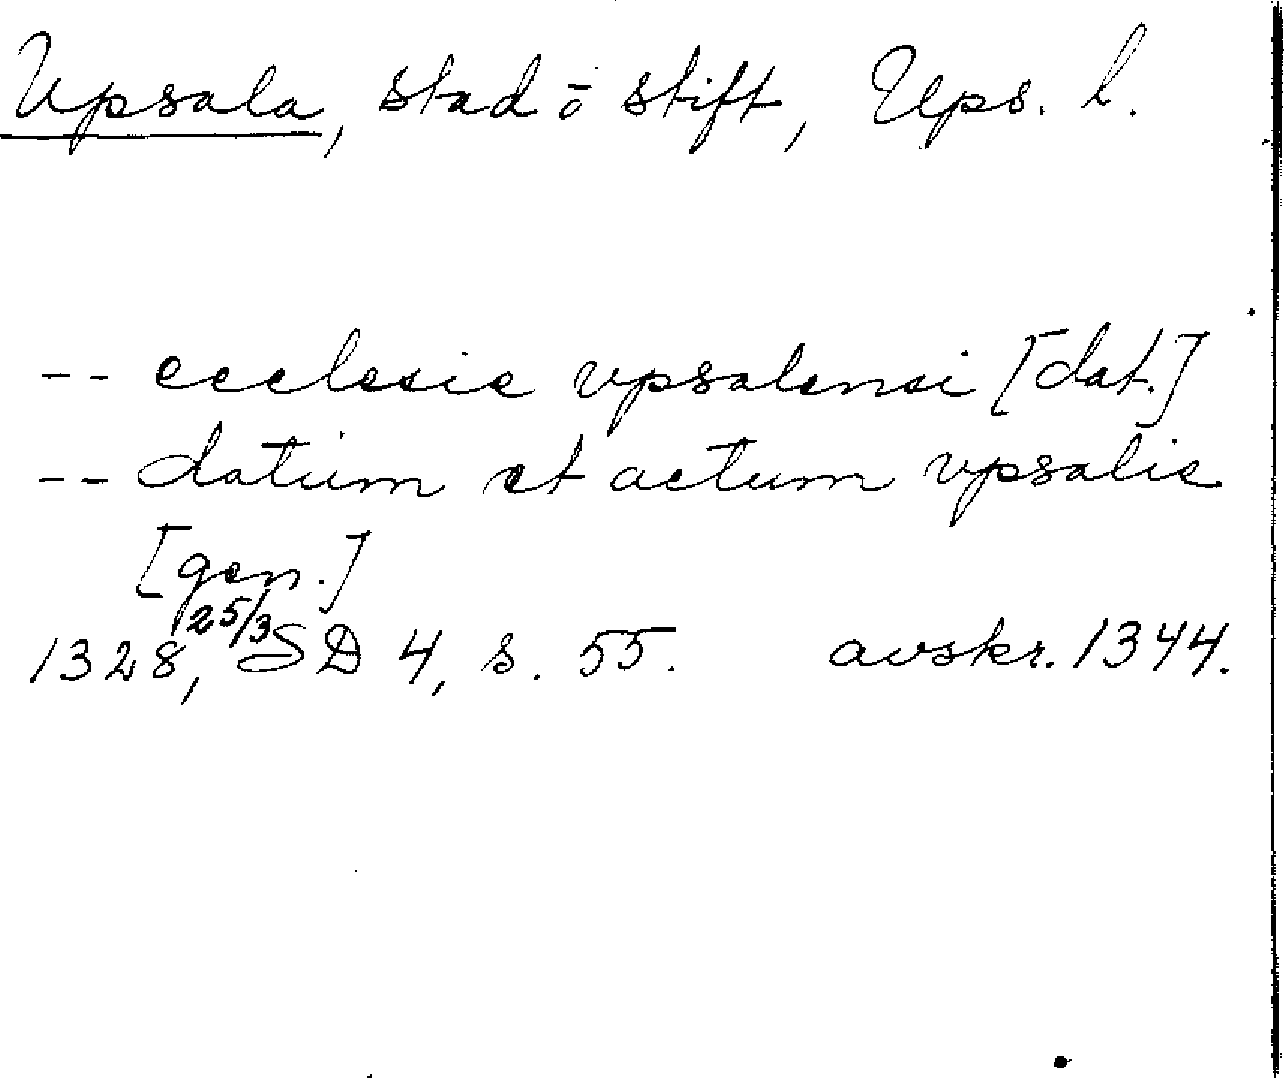 Upsala, stad ō stift, Ups. l.
-- ecclesie vpsalensi [dat.]
-- datum et actum vpsalie
[gen.]
1328, 25/3 SD 4, s. 55. avskr. 1344.